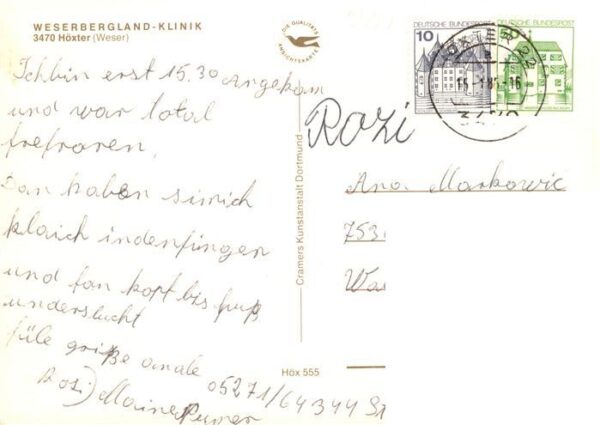 WESERBERGLAND-KLINIK
3470 Höxter (Weser)
DIE QUALITÄTS
ANSICHTSKARTE
DEUTSCHE BUNDESPOST
10
DEUTSCHE BUNDESPOST
50
Ich bin erst 15.30 angekom
und war total
frefroren.
Dan haben si mich
klaich indenfingen
und fan kopf bis fuß
underslucht
füle griße an ale
Rosi) Maine
05271/64344 Sr
Cramers Kunstanstalt Dortmund
Höx 555
Rozi
Ana. Markowic
753.
Wa